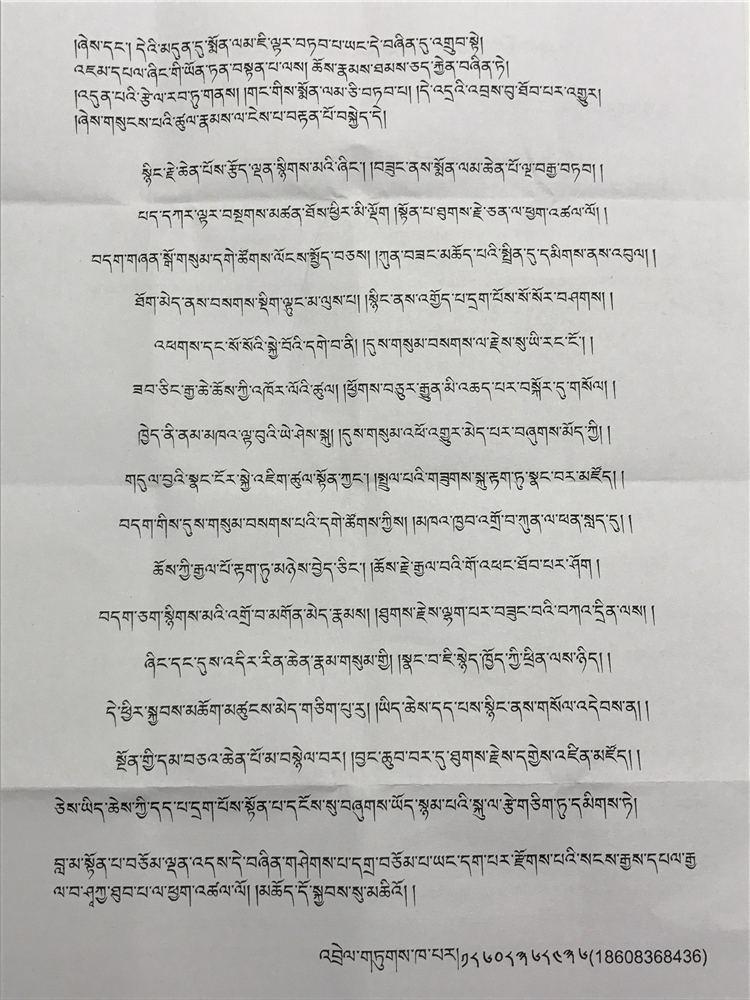 །ཞེས་དང་། དེའི་མདུན་དུ་སྨོན་ལམ་ཇི་ལྟར་བཏབ་པ་ཡང་དེ་བཞིན་དུ་འགྲུབ་སྟེ།
འཇམ་དཔལ་ཞིང་གི་ཡོན་ཏན་བསྟན་པ་ལས། ཆོས་རྣམས་ཐམས་ཅད་རྐྱེན་བཞིན་ཏེ།
།འདུན་པའི་རྩེ་ལ་རབ་ཏུ་གནས། །གང་གིས་སྨོན་ལམ་ཅི་བཏབ་པ། །དེ་འདྲའི་འབྲས་བུ་ཐོབ་པར་འགྱུར།
།ཞེས་གསུངས་པའི་ཚུལ་རྣམས་ལ་ངེས་པ་བརྟན་པོ་བསྐྱེད་དེ།
སྙིང་རྗེ་ཆེན་པོས་རྩོད་ལྡན་སྙིགས་མའི་ཞིང་། །བཟུང་ནས་སྨོན་ལམ་ཆེན་པོ་ལྔ་བརྒྱ་བཏབ། །
པད་དཀར་ལྟར་བསྔགས་མཚན་ཐོས་ཕྱིར་མི་ལྡོག །སྟོན་པ་ཐུགས་རྗེ་ཅན་ལ་ཕྱག་འཚལ་ལོ། །
བདག་གཞན་སྒོ་གསུམ་དགེ་ཚོགས་ལོངས་སྤྱོད་བཅས། །ཀུན་བཟང་མཆོད་པའི་སྤྲིན་དུ་དམིགས་ནས་འབུལ། །
ཐོག་མེད་ནས་བསགས་སྡིག་ལྟུང་མ་ལུས་པ། །སྙིང་ནས་འགྱོད་པ་དྲག་པོས་སོ་སོར་བཤགས། །
འཕགས་དང་སོ་སོའི་སྐྱེ་བོའི་དགེ་བ་ནི། །དུས་གསུམ་བསགས་ལ་རྗེས་སུ་ཡི་རང་ངོ་། །
ཟབ་ཅིང་རྒྱ་ཆེ་ཆོས་ཀྱི་འཁོར་ལོའི་ཚུལ། །ཕྱོགས་བཅུར་རྒྱུན་མི་འཆད་པར་བསྐོར་དུ་གསོལ། །
ཁྱེད་ནི་ནམ་མཁའ་ལྟ་བུའི་ཡེ་ཤེས་སྐུ། །དུས་གསུམ་འཕོ་འགྱུར་མེད་པར་བཞུགས་མོད་ཀྱི། །
གདུལ་བྱའི་སྣང་ངོར་སྐྱེ་འཇིག་ཚུལ་སྟོན་ཀྱང་། །སྤྲུལ་པའི་གཟུགས་སྐུ་རྟག་ཏུ་སྣང་བར་མཛོད། །
བདག་གིས་དུས་གསུམ་བསགས་པའི་དགེ་ཚོགས་ཀྱིས། །མཁའ་ཁྱབ་འགྲོ་བ་ཀུན་ལ་ཕན་སླད་དུ། །
ཆོས་ཀྱི་རྒྱལ་པོ་རྟག་ཏུ་མཉེས་བྱེད་ཅིང་། །ཆོས་རྗེ་རྒྱལ་བའི་གོ་འཕང་ཐོབ་པར་ཤོག །
བདག་ཅག་སྙིགས་མའི་འགྲོ་བ་མགོན་མེད་རྣམས། །ཐུགས་རྗེས་ལྷག་པར་བཟུང་བའི་བཀའ་དྲིན་ལས། །
ཞིང་དང་དུས་འདིར་རིན་ཆེན་རྣམ་གསུམ་གྱི། །སྣང་བ་ཇི་སྙེད་ཁྱོད་ཀྱི་ཕྲིན་ལས་ཉིད། །
དེ་ཕྱིར་སྐྱབས་མཆོག་མཚུངས་མེད་གཅིག་པུ་རུ། །ཡིད་ཆེས་དད་པས་སྙིང་ནས་གསོལ་འདེབས་ན། །
སྔོན་གྱི་དམ་བཅའ་ཆེན་པོ་མ་བསྙེལ་བར། །བྱང་ཆུབ་བར་དུ་ཐུགས་རྗེས་དགྱེས་འཛིན་མཛོད། །
ཅེས་ཡིད་ཆེས་ཀྱི་དད་པ་དྲག་པོས་སྟོན་པ་དངོས་སུ་བཞུགས་ཡོད་སྙམ་པའི་སྐུ་ལ་རྩེ་གཅིག་ཏུ་དམིགས་ཏེ།
བླ་མ་སྟོན་པ་བཅོམ་ལྡན་འདས་དེ་བཞིན་གཤེགས་པ་དགྲ་བཅོམ་པ་ཡང་དག་པར་རྫོགས་པའི་སངས་རྒྱས་དཔལ་རྒྱ
ལ་བ་ཤཱཀྱ་ཐུབ་པ་ལ་ཕྱག་འཚལ་ལོ། །མཆོད་དོ་སྐྱབས་སུ་མཆིའོ། །
འབྲེལ་གཏུགས་ཁ་པར།༡༨༦༠༨༣༦༨༤༣༦(18608368436)